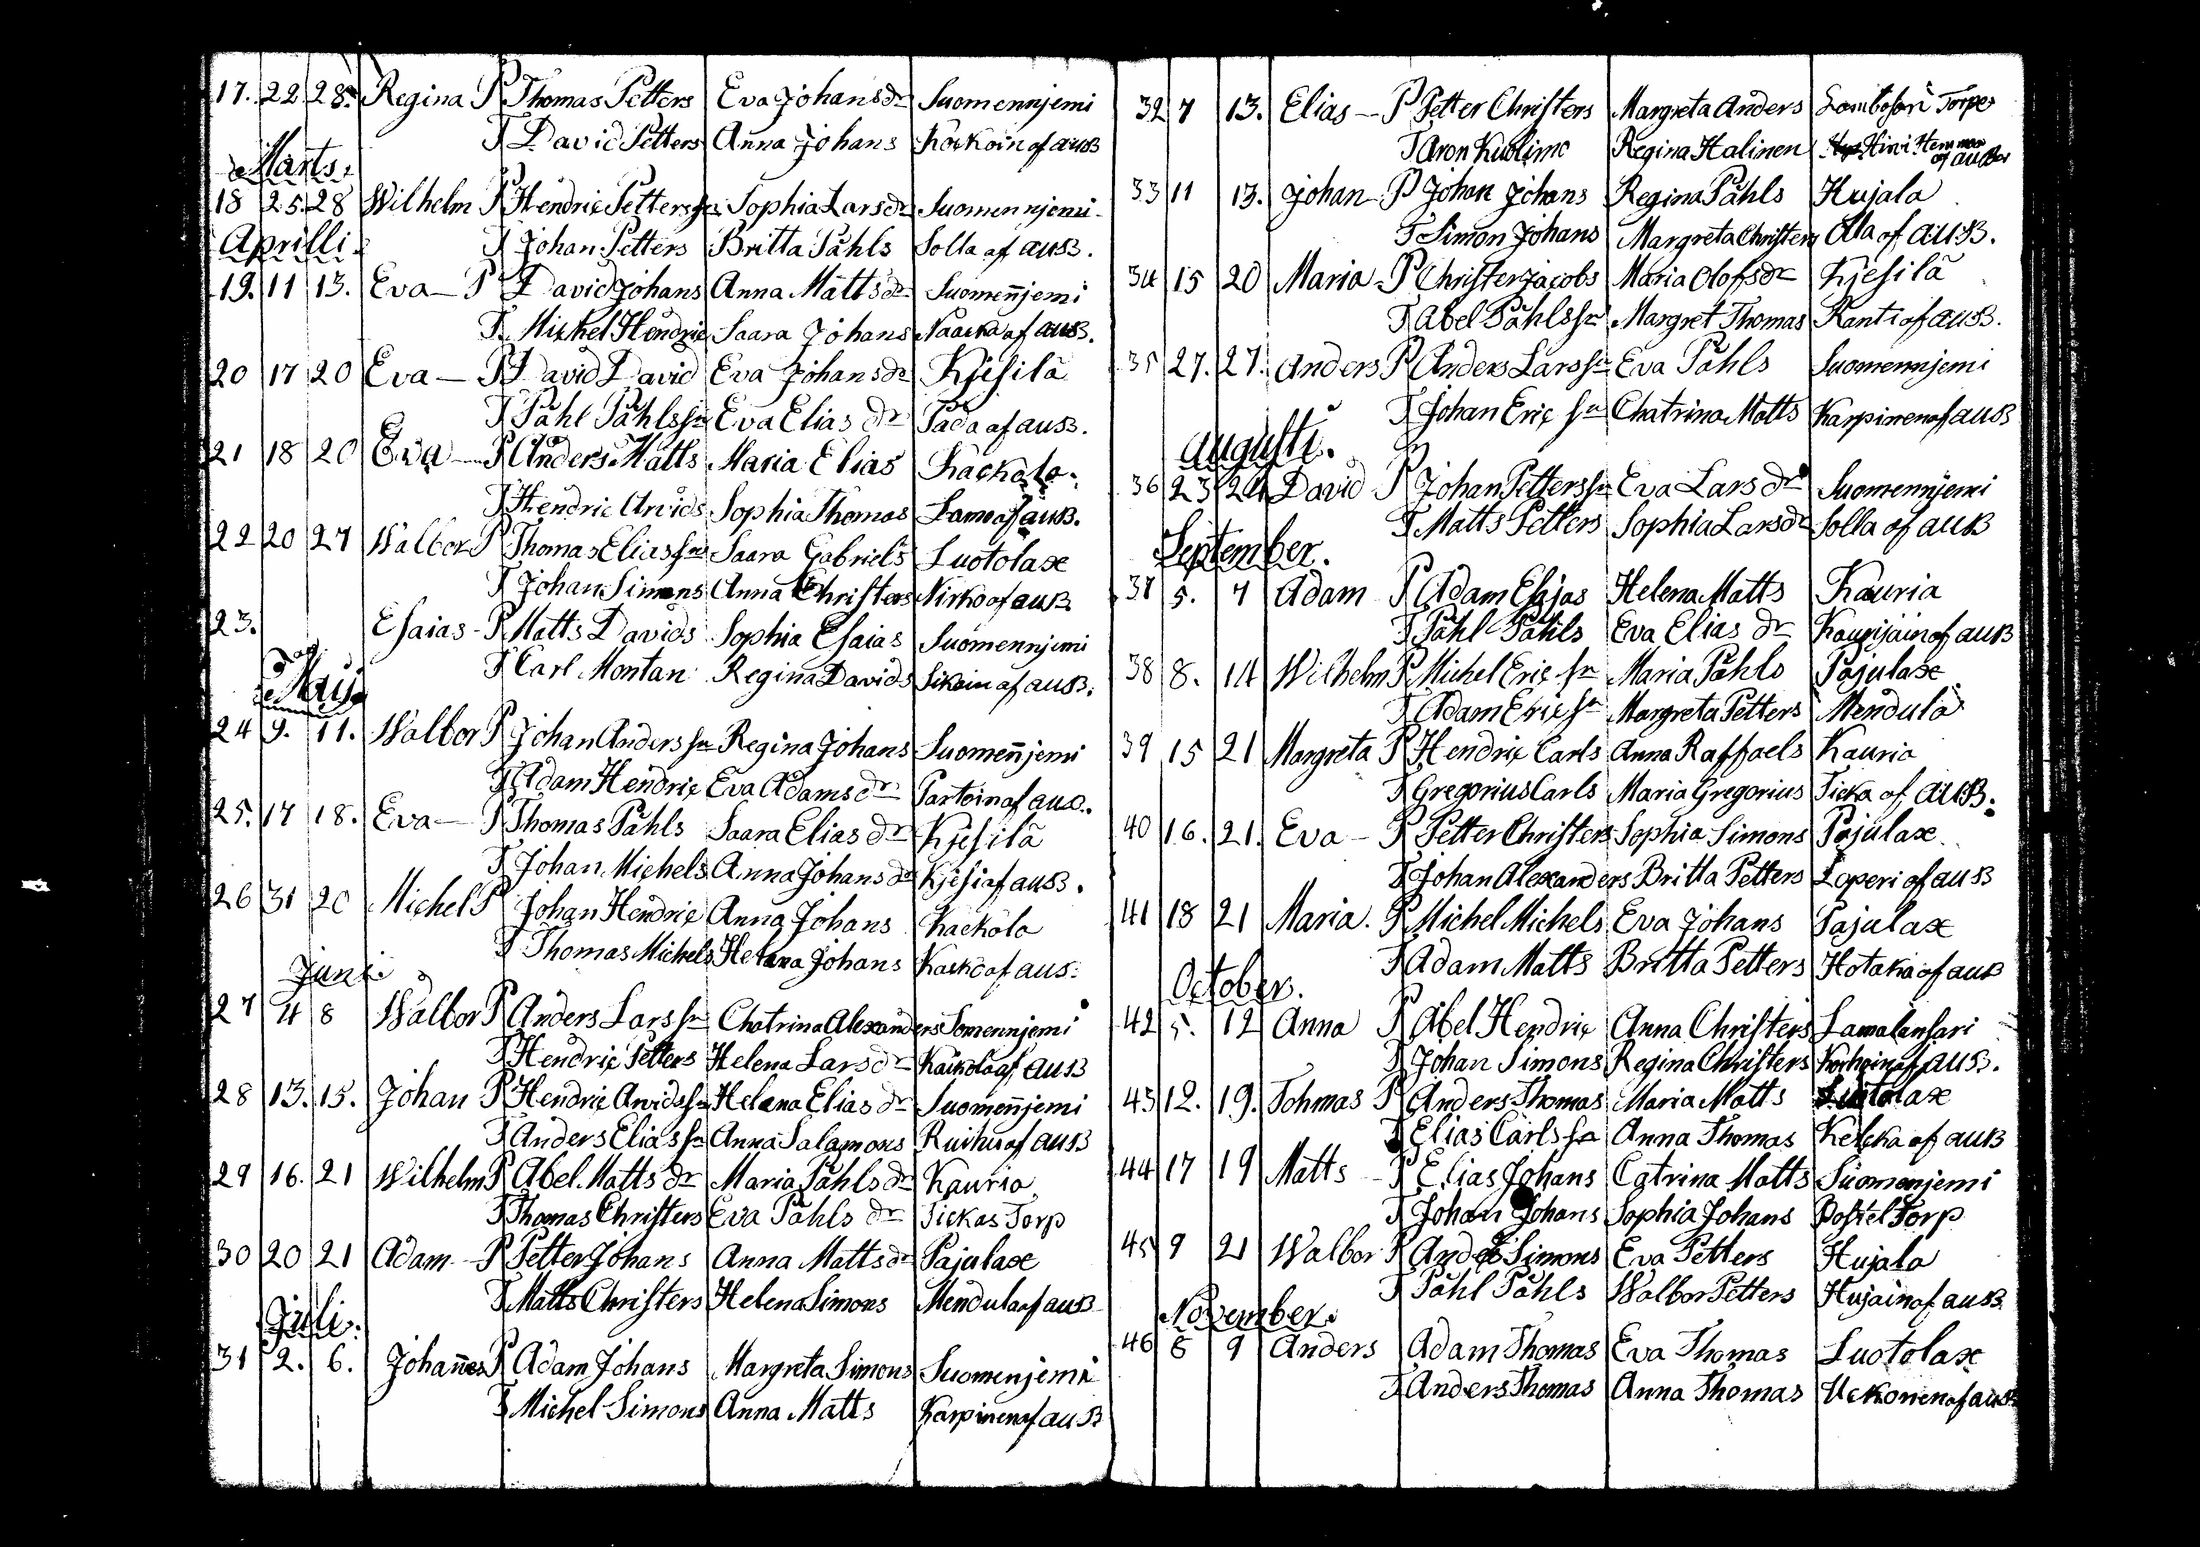 17. 22 28. Regina P Thomas Petters Eva Johans dr Suomennjemi
T David Petters Anna Johans Kockoin af auß
Marts.
18 25 28 Wilhelm P Hendric Petters sn Sophia Lars dr Suomennjemi
Aprilli.
T Johan Petters Britta Påhls Solla af auß.
19. 11 13. Eva — P David Johans Anna Matts dr Suomen̄jemi
T Michel Hendric Saara Johans Naacka af auß.
20 17 20 Eva — P David David Eva Johans dr Kjesilä
T Påhl Påhls sn Eva Elias dr Pada af auß.
21 18 20 Eva — P Anders Matts Maria Elias Käckälo.
T Hendric Arvids Sophia Thomas af auß.
22 20 27 Walbor P Thomas Elias sn Saara Gabriels Luotolax
T Johan Simons Anna Christers Nirko af auß
23. Esaias - P Matts Davids Sophia Esaias Suomennjemi
T Carl Montan Regina Davids af auß.
Maij
24 9. 11. Walbor P Johan Anders sn Regina Johans Suomen̄jemi
T Adam Hendric Eva Adams dr Partoin af aus..
25. 17 18. Eva — P Thomas Påhls Saara Elias dr Kjesilä
T Johan Michels Anna Johans dr Kjesi af auß.
26 31 20 Michel P Johan Hendric Anna Johans Kackola
T Thomas Michels Helena Johans Kacko af aus.
Juni.
27 4 8 Walbor P Anders Lars sn Chatrina Alexanders Somennjemi
T Hendric Petters Helena Lars dr af auß
28 13. 15. Johan P Hendric Arvids sn Helena Elias dr Suomen̄jemi
T Anders Elias sn Anna Salamons Ruihu af auß
29 16. 21 Wilhelm P Abel Matts dr Maria Påhls dr Kauria
T Thomas Christers Eva Påhls dr Tickas Torp
30 20 21 Adam - P Petter Johans Anna Matts dr Pajulax
T Matts Christers Helena Simons Mendula af auß
Juli.
31 2. 6. Johan̄es P Adam Johans Margreta Simons Suomenjemi
T Michel Simons Anna Matts Karpinen af auß
32 7 13. Elias — P Petter Christers Margreta Anders Torper
T Aron Kuolimo Regina Halinen af auß
33 11 13. Johan - P Johan Johans Regina Påhls Hujala
T Simon Johans Margreta Christers Olla af auß.
34 15 20 Maria - P Christer Jacobs Maria Olofs dr Kjesilä
T Abel Påhls sn Margret Thomas Ranti af auß.
35 27. 27. Anders P Anders Lars sn Eva Påhls Suomennjemi
T Johan Eric sn Chatrina Matts Karpinen af auß
Augusti.
36 23 24 David P Johan Petters sn Eva Lars dr Suomennjemi
T Matts Petters Sophia Lars dr Solla af auß
September.
37 5. 7 Adam P Adam Esajas Helena Matts Kauria
T Påhl Påhls Eva Elias dr Kaurijain af auß
38 8. 14 Wilhelm P Michel Eric sn Maria Påhls Pajulax
T Adam Eric sn Margreta Petters Mendula
39 15 21 Margreta P Hendric Carls Anna Raffaels Kauria
T Gregorius Carls Maria Gregorius Ticka af auß.
40 16. 21. Eva — P Petter Christers Sophia Simons Pajulax
T Johan Alexanders Britta Petters Laperi af auß
41 18 21 Maria. P Michel Michels Eva Johans Pajulax
T Adam Matts Britta Petters Hotaka af auß
October.
42 5. 12 Anna P Abel Hendric Anna Christers Lamalansari
T Johan Simons Regina Christers af auß.
43 12. 19. Tohmas P Anders Thomas Maria Matts Luotolax
T Elias Carls sn Anna Thomas Kelcka af auß
44 17 19 Matts - P Elias Johans Catrina Matts Suomenjemi
T Johan Johans Sophia Johans Postel Torp
45 9 21 Walbor P Anders Simons Eva Petters Hujala
T Påhl Påhls Walbor Petters Hujain af auß
November.
46 8 9 Anders Adam Thomas Eva Thomas Luotolax
T Anders Thomas Anna Thomas Uckonen af auß